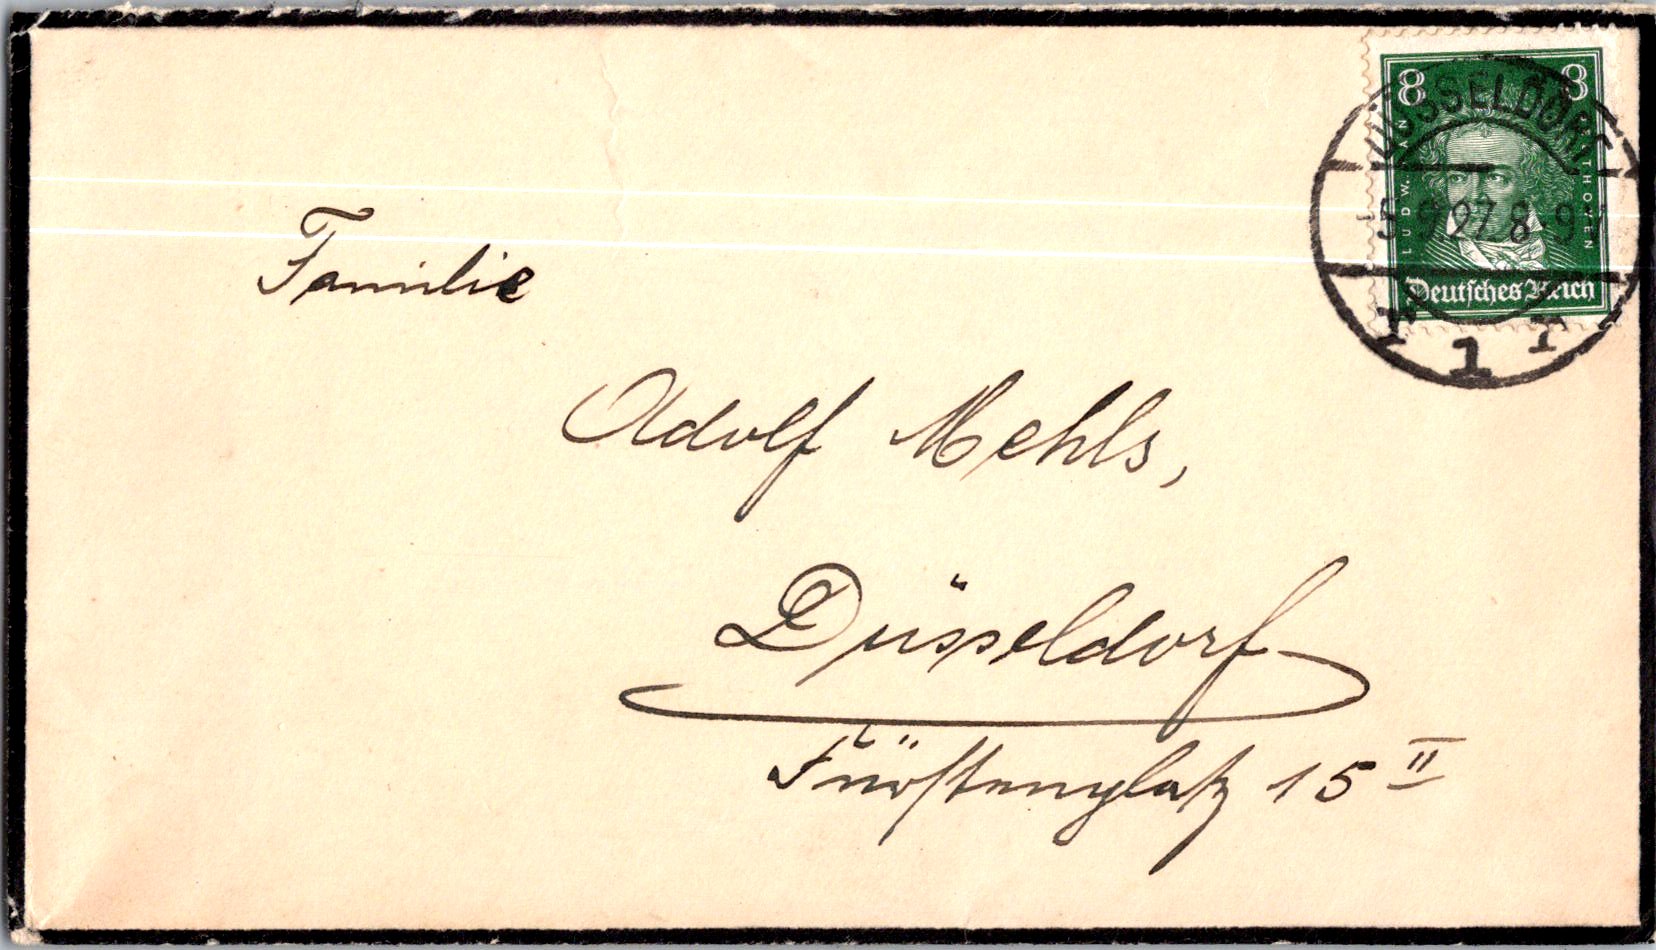 8 8
LUDW. VAN
BEETHOVEN
Deutsches Reich
DÜSSELDORF
5.9.27. 8-9V
1
Familie
Adolf Mehls,
Düsseldorf
Fürstenplatz 15 II